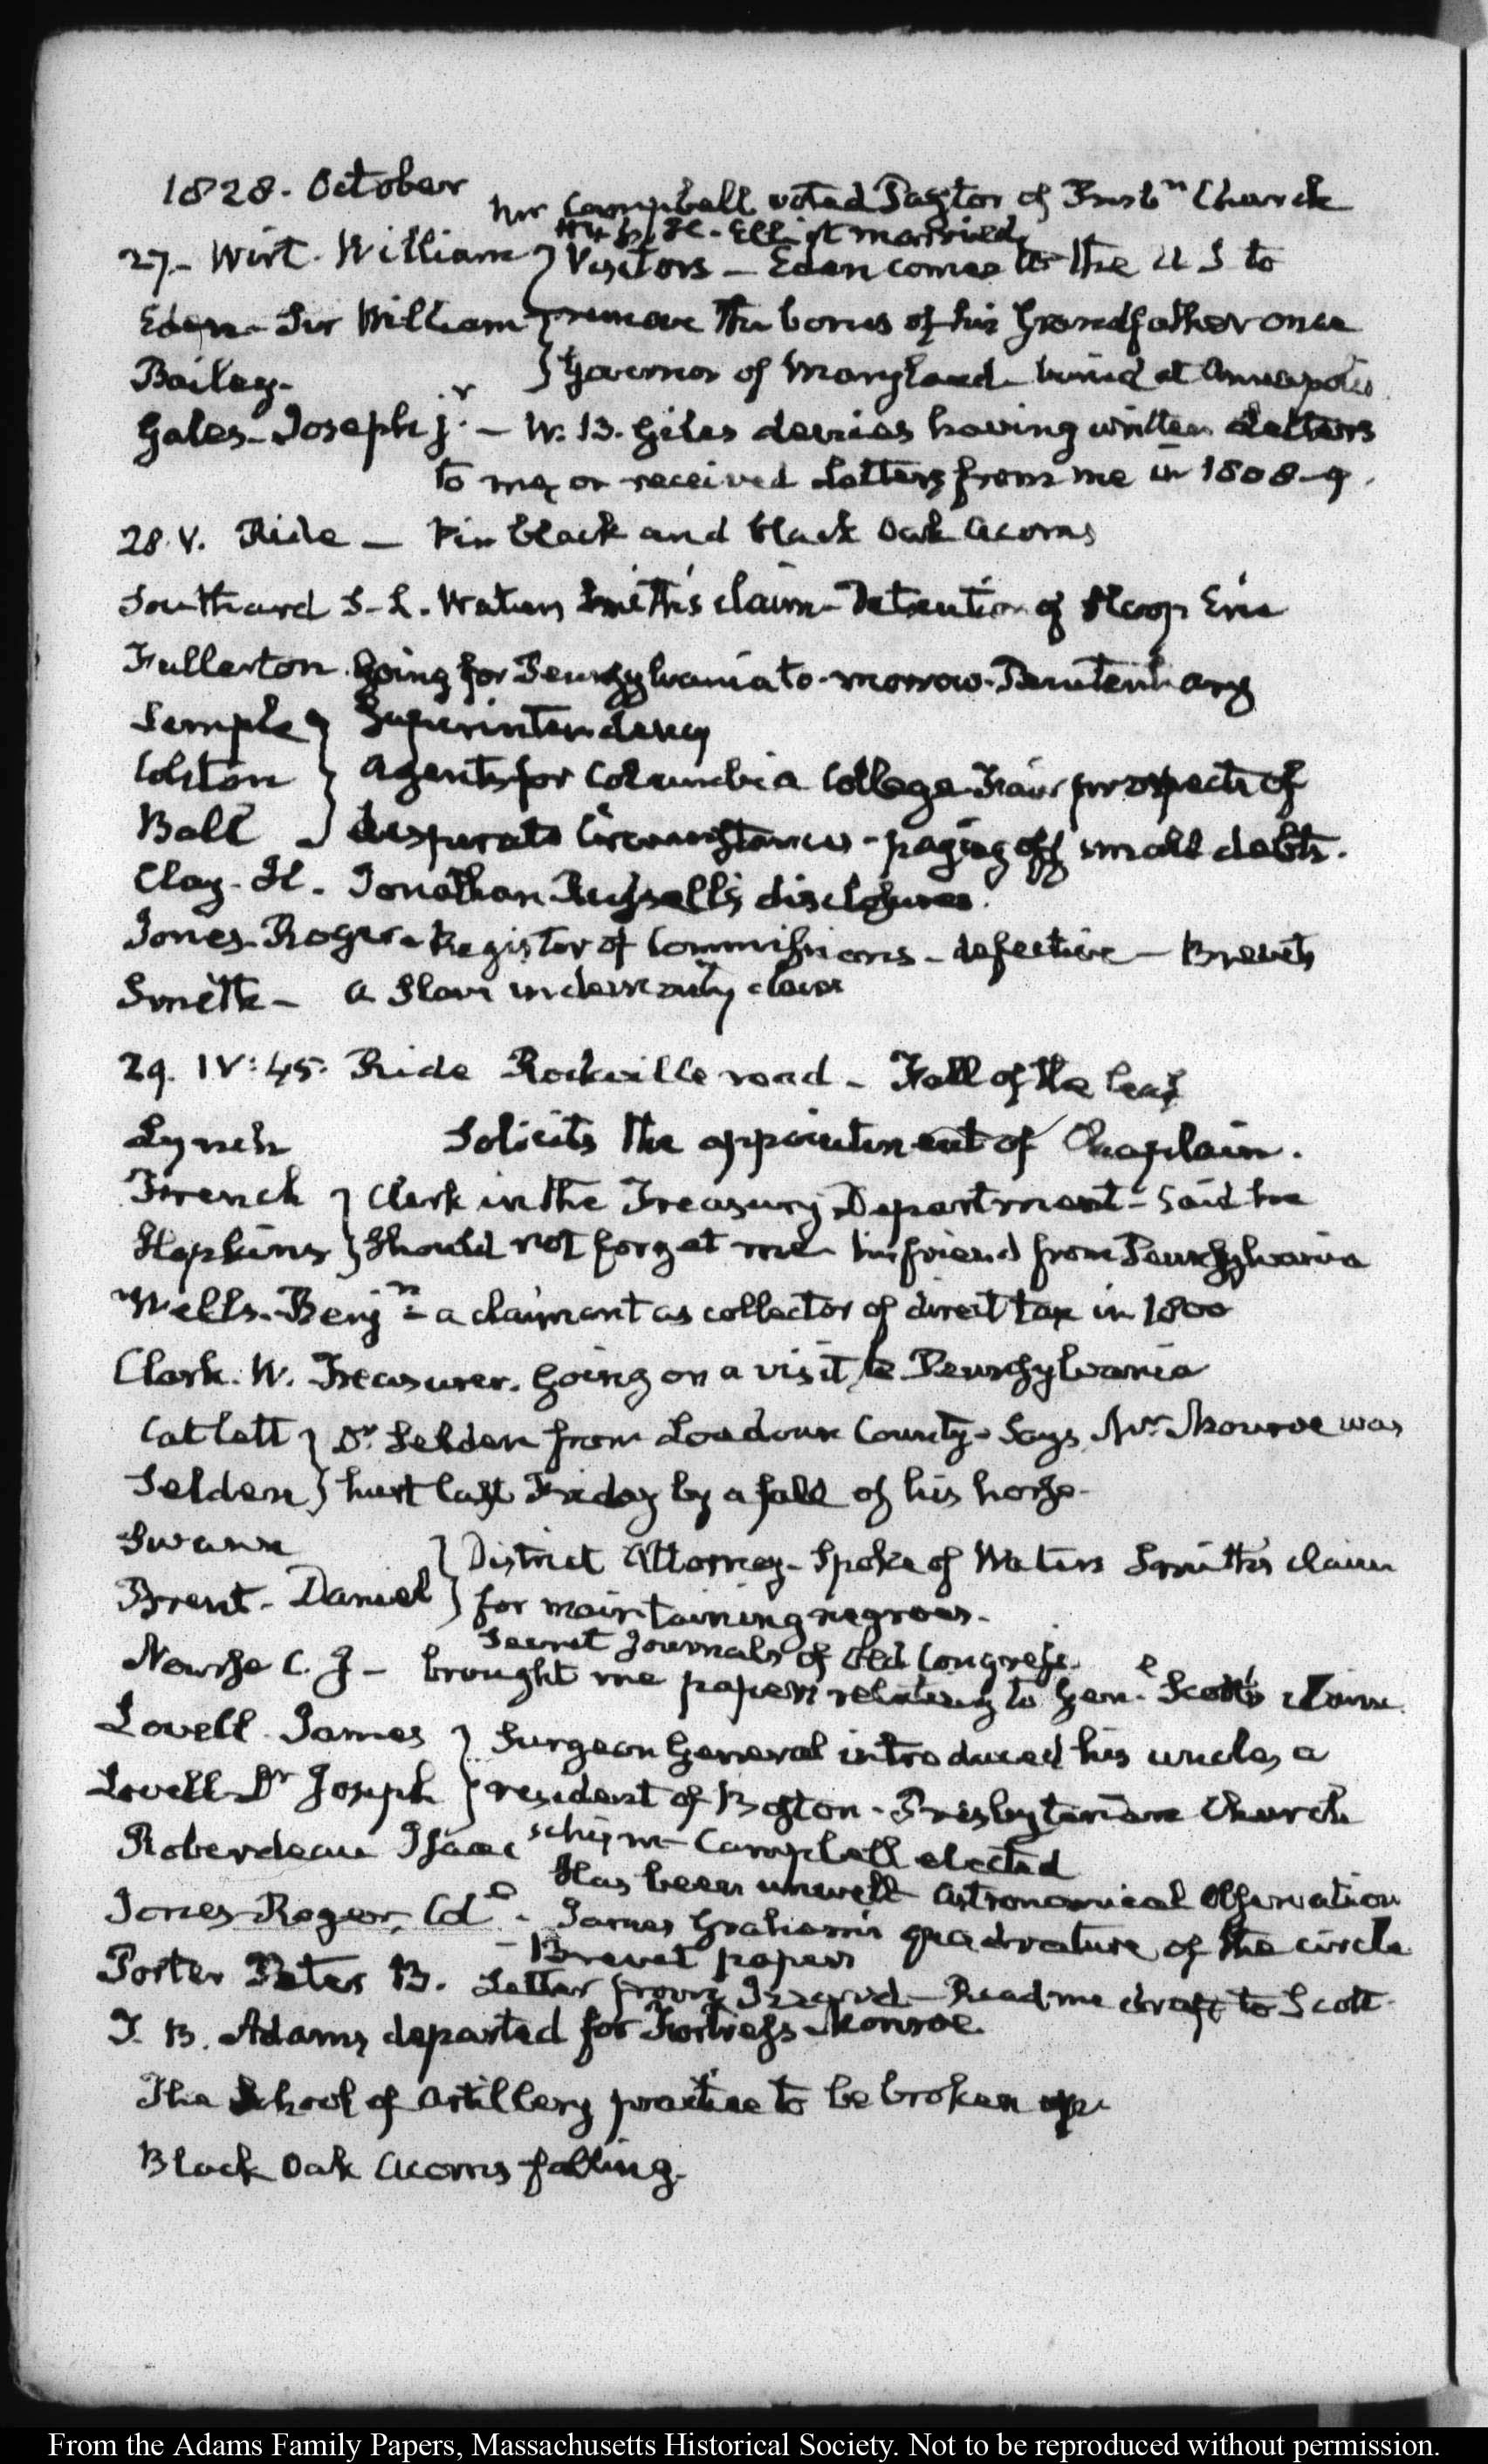 1828. October
Mr Campbell voted Pastor of Presbn Church
H. Elliot married
27. Wirt. William } Visitors — Eden comes to the U S to
Eden. Sir William } remove the bones of his Grandfather once
Bailey. } Governor of Maryland buried at Annapolis.
Gales. Joseph jr. — W. B. Giles denies having written Letters
to me or received Letters from me in 1808-9.
28. V. Ride — Pin black and black Oak Acorns
Southard S. L. Waters Smith's claim. Detention of Sloop Erie
Fullerton. Going for Pennsylvania to-morrow. Penitentiary
Semple } Superintendency
Colston } Agents for Columbia College. Fair prospects of
Ball } desperate Circumstances - paying off small debts.
Clay. H. Jonathan Russell's disclosures.
Jones. Roger. Register of Commissions. defective — Brevets
Smith — a Slave indemnity claim
29. IV:45. Ride Rockville road. Fall of the leaf
Lynch Solicits the appointment of Chaplain.
French } Clerk in the Treasury Department - Said he
Hopkins } Should not forget me. his friend from Pennsylvania
Wells. Benjn — a claimant as collector of direct tax in 1800
Clark. W. Treasurer. Going on a visit to Pennsylvania
Catlett } Dr. Selden from Loudoun County. Says Mr. Monroe was
Selden } hurt last Friday by a fall of his horse.
Swann } District Attorney. Spoke of Waters Smith's claim
Brent. Daniel } for maintaining negroes.
Secret Journals of Old Congress.
Nourse C. J — brought me papers relating to Genl. Scott's claim.
Lovell. James } Surgeon General introduced his uncle, a
Lovell Dr Joseph } resident of Boston. Presbyterian Church
Roberdeau Isaac schism — Campbell elected
Has been unwell Astronomical Observation
Jones. Roger, Col. James Graham's quadrature of the circle
— Brevet papers
Porter Peter B. Letter from Izard — Read me draft to Scott.
T. B. Adams departed for Fortress Monroe.
The School of Artillery practice to be broken up.
Black Oak Acorns falling.
From the Adams Family Papers, Massachusetts Historical Society. Not to be reproduced without permission.